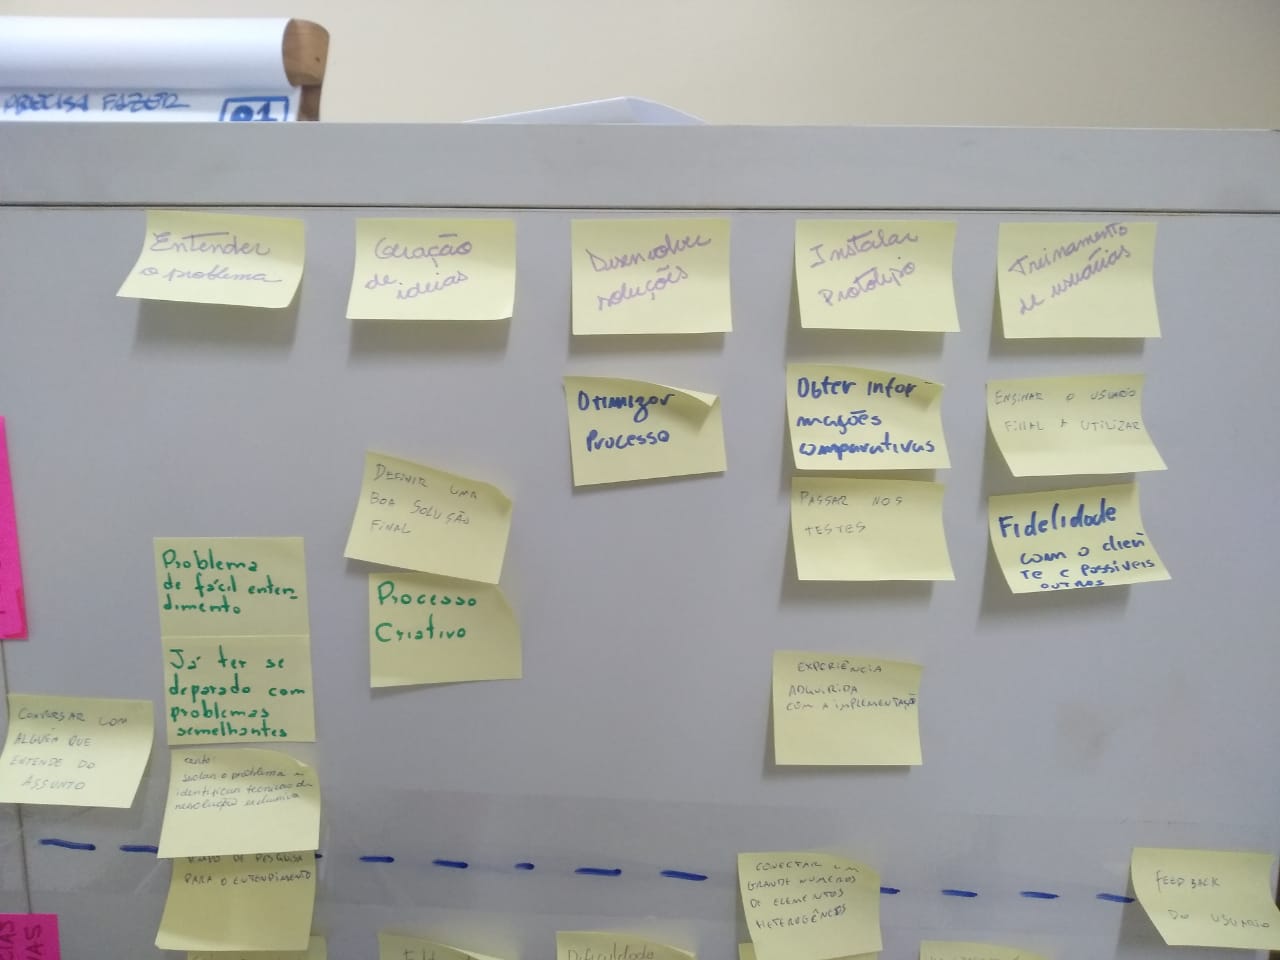 PRECISA FAZER
01
Entender
o problema
Geração
de ideias
Desenvolver
soluções
Instalar
Protótipo
Treinamento
de usuários
Otimizar
Processo
Obter infor-
mações
comparativas
ENSINAR O USUÁRIO
FINAL A UTILIZAR
DEFINIR UMA
BOA SOLUÇÃO
FINAL
PASSAR NOS
TESTES
Fidelidade
com o clien
te e possíveis
outros
Problema
de fácil enten-
dimento
Processo
Criativo
Já ter se
deparado com
problemas
semelhantes
EXPERIÊNCIA
ADQUIRIDA
COM A IMPLEMENTAÇÃO
CONVERSAR COM
ALGUÉM QUE
ENTENDE DO
ASSUNTO
isolar o problema e
identificar técnicas de
resolução
DE PESQUISA
PARA O ENTENDIMENTO
CONECTAR UM
GRANDE NÚMEROS
DE ELEMENTOS
HETEROGÊNEOS
FEEDBACK
DO USUÁRIO
Dificuldade